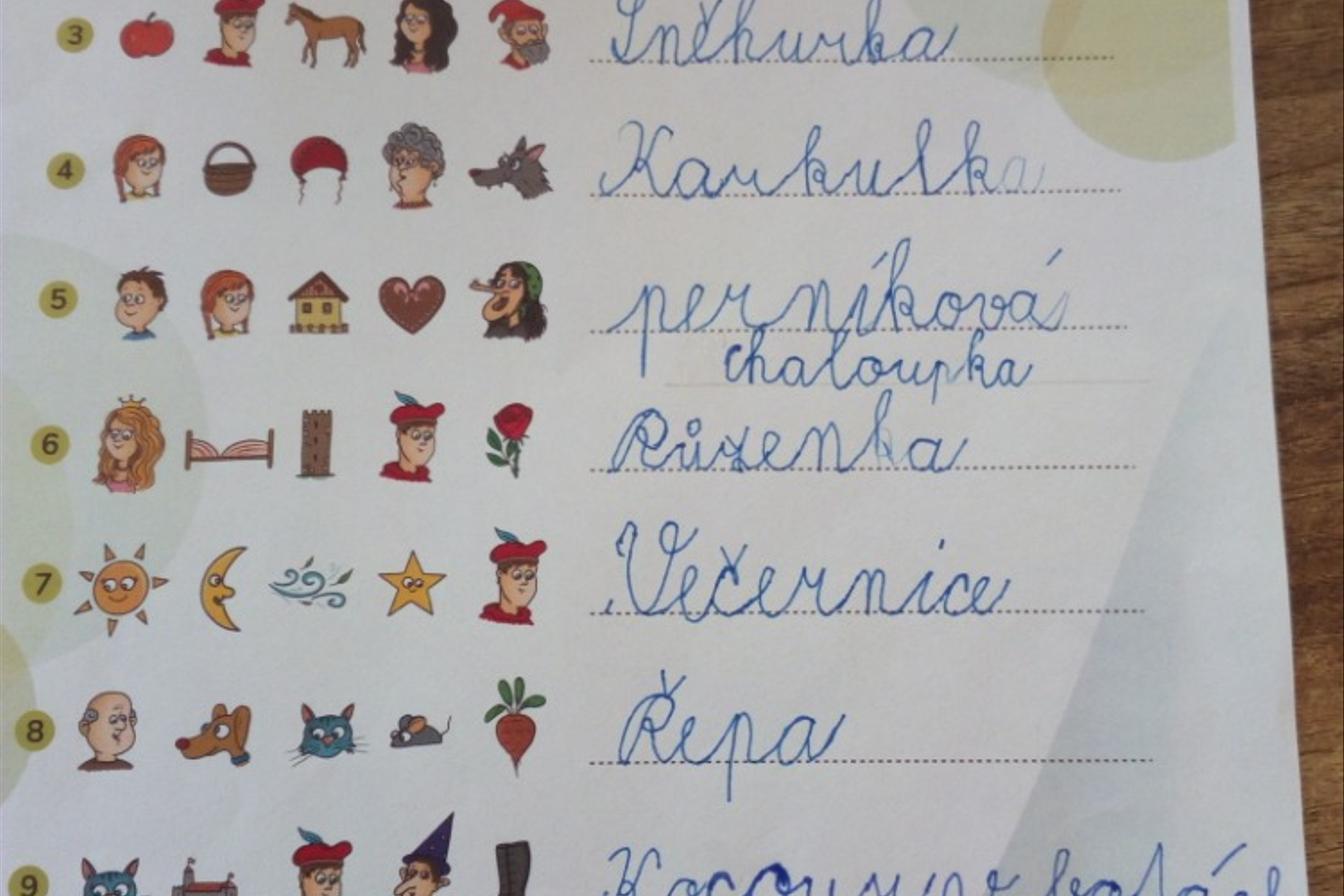 3 Sněhurka
4 Karkulka
5 perníková
chaloupka
6 Růženka
7 Večernice
8 Řepa
9 Kocour v botách